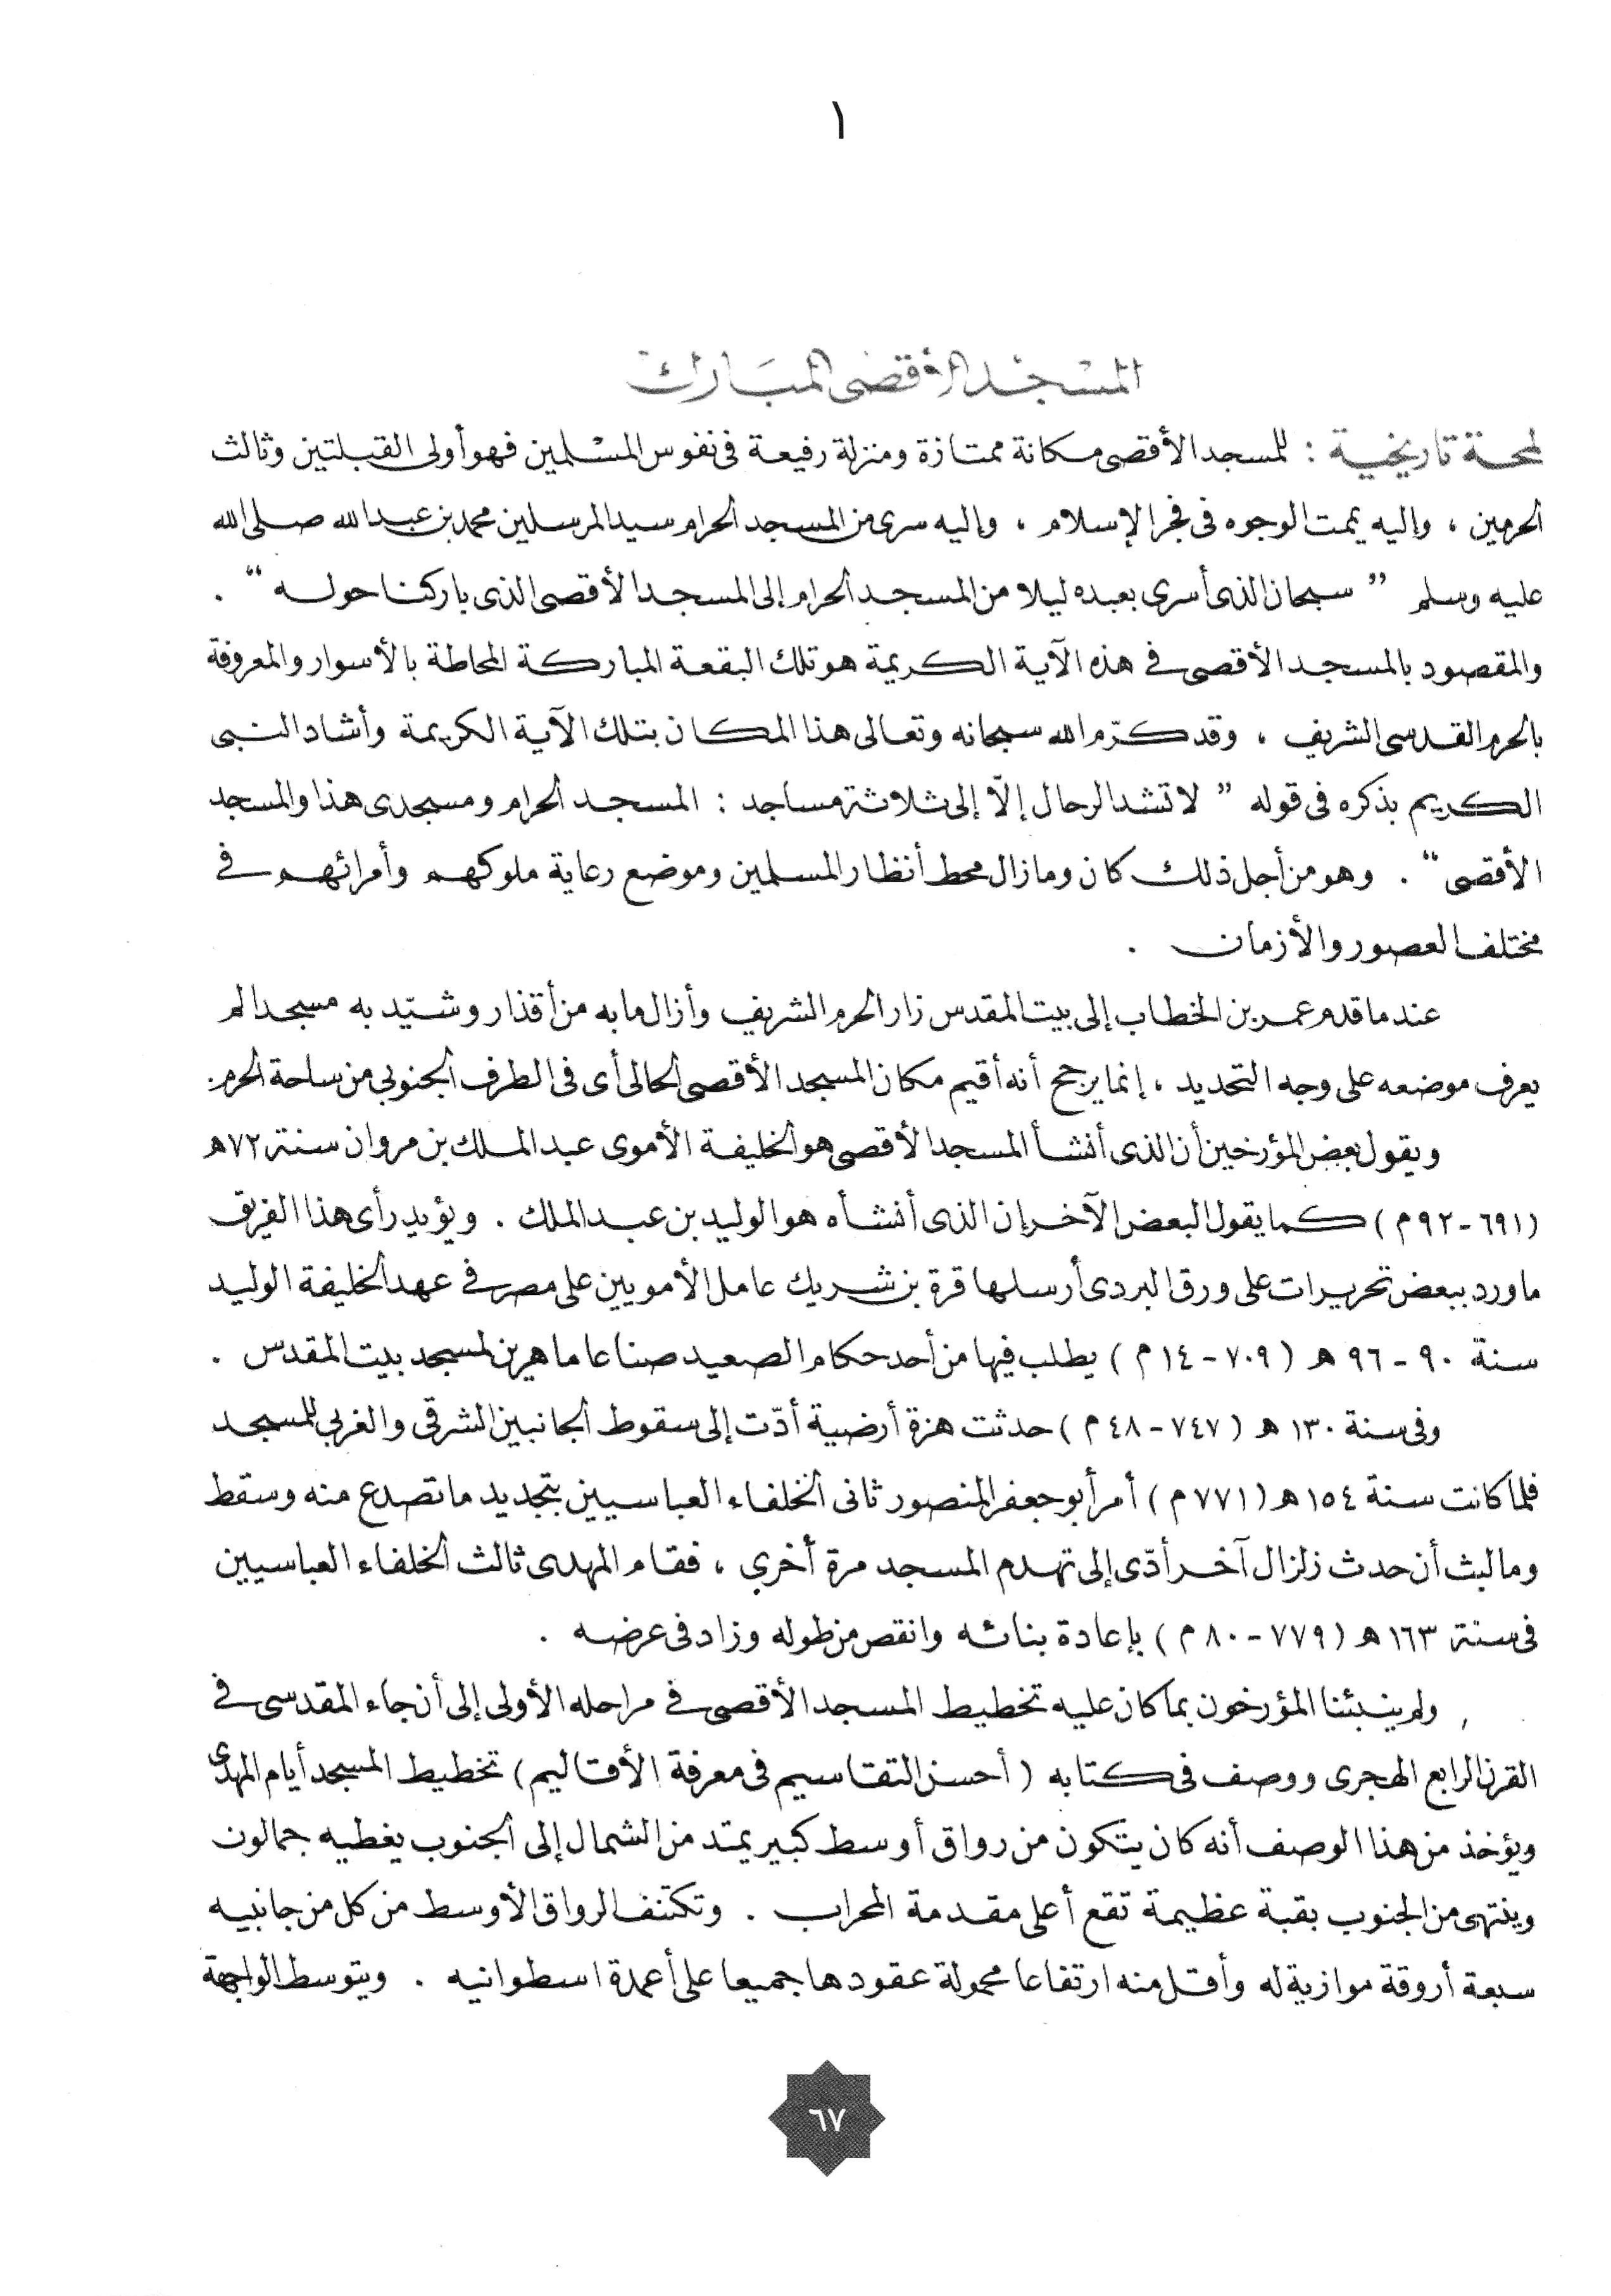 ١
المسجد الأقصى المبارك
لمحة تاريخية : للمسجد الأقصى مكانة ممتازة ومنزلة رفيعة فى نفوس المسلمين فهو أولى القبلتين وثالث
الحرمين ، وإليه يممت الوجوه فى فجر الإسلام ، وإليه سرى من المسجد الحرام سيد المرسلين محمد بن عبدالله صلى الله
عليه وسلم " سبحان الذى أسرى بعبده ليلا من المسجد الحرام إلى المسجد الأقصى الذى باركنا حوله " .
والمقصود بالمسجد الأقصى فى هذه الآية الكريمة هو تلك البقعة المباركة المحاطة بالأسوار والمعروفة
بالحرم القدسى الشريف ، وقد كرّم الله سبحانه وتعالى هذا المكان بتلك الآية الكريمة وأشاد النبى
الكريم بذكره فى قوله " لا تشد الرحال إلّا إلى ثلاثة مساجد : المسجد الحرام ومسجدى هذا والمسجد
الأقصى " . وهو من أجل ذلك كان وما زال محط أنظار المسلمين وموضع رعاية ملوكهم وأمرائهم فى
مختلف العصور والأزمان .
عندما قدم عمر بن الخطاب إلى بيت المقدس زار الحرم الشريف وأزال ما به من أقذار وشيّد به مسجدا لم
يعرف موضعه على وجه التحديد ، إنما يرجح أنه أقيم مكان المسجد الأقصى الحالى أى فى الطرف الجنوبى من ساحة الحرم .
ويقول بعض المؤرخين أن الذى أنشأ المسجد الأقصى هو الخليفة الأموى عبد الملك بن مروان سنة ٧٢ هـ
(٦٩١ - ٩٢ م ) كما يقول البعض الآخر إن الذى أنشأه هو الوليد بن عبد الملك . ويؤيد رأى هذا الفريق
ما ورد ببعض تحريرات على ورق البردى أرسلها قرة بن شريك عامل الأمويين على مصر فى عهد الخليفة الوليد
سنة ٩٠ - ٩٦ هـ ( ٧٠٩ - ١٤ م ) يطلب فيها من أحد حكام الصعيد صناعا ماهرين لمسجد بيت المقدس .
وفى سنة ١٣٠ هـ ( ٧٤٧ - ٤٨ م ) حدثت هزة أرضية أدّت إلى سقوط الجانبين الشرقى والغربى للمسجد
فلما كانت سنة ١٥٤ هـ ( ٧٧١ م ) أمر أبو جعفر المنصور ثانى الخلفاء العباسيين بتجديد ما تصدع منه وسقط
وما لبث أن حدث زلزال آخر أدّى إلى تهدم المسجد مرة أخرى ، فقام المهدى ثالث الخلفاء العباسيين
فى سنة ١٦٣ هـ ( ٧٧٩ - ٨٠ م ) بإعادة بنائه وانقص من طوله وزاد فى عرضه .
ولم ينبئنا المؤرخون بما كان عليه تخطيط المسجد الأقصى فى مراحله الأولى إلى أن جاء المقدسى فى
القرن الرابع الهجرى ووصف فى كتابه ( أحسن التقاسيم فى معرفة الأقاليم ) تخطيط المسجد أيام المهدى
ويؤخذ من هذا الوصف أنه كان يتكون من رواق أوسط كبير يمتد من الشمال إلى الجنوب يغطيه جمالون
وينتهى من الجنوب بقبة عظيمة تقع أعلى مقدمة المحراب . وتكتنف الرواق الأوسط من كل من جانبيه
سبعة أروقة موازية له وأقل منه ارتفاعا محمولة عقودها جميعا على أعمدة اسطوانيه . ويتوسط الواجهة
٦٧